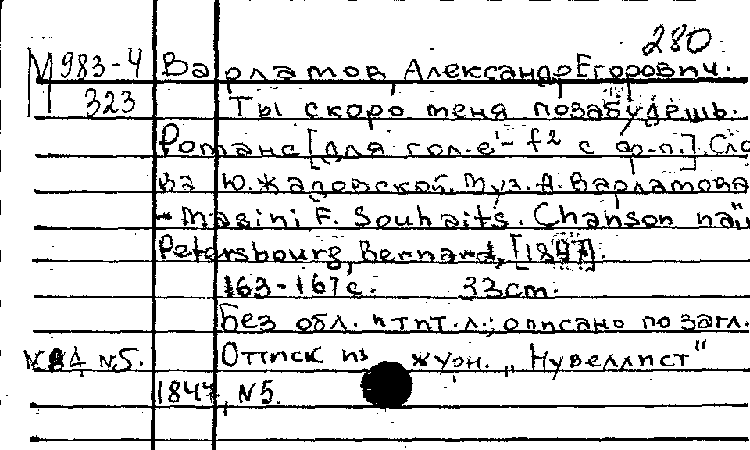 280
М 983-4 Варламов, Александр Егорович.
323 Ты скоро меня позабудешь.
Романс [для гол. e¹- f² с ф-п.]. Сло
ва Ю. Жадовской. Муз. А. Варламова
- Masini F. Souhaits. Chanson naï
Petersbourg, Bernard, [1847].
163-167 с. 33 cm.
Без обл. и тит. л.; описано по загл.
N5. Оттиск из журн. „Нувеллист"
1847, N5.